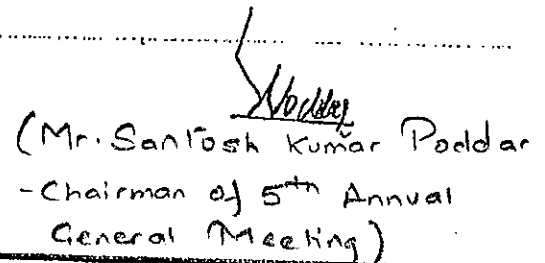 (Mr. Santosh Kumar Poddar
-Chairman of 5th Annual
General Meeting)